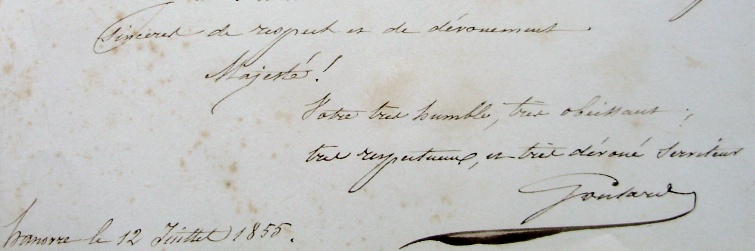 sincères de respect et de dévouement.
Majesté!
Votre très humble, très obéissant,
très respectueux, et très dévoué Serviteur
hanovre le 12 Juillet 1855.